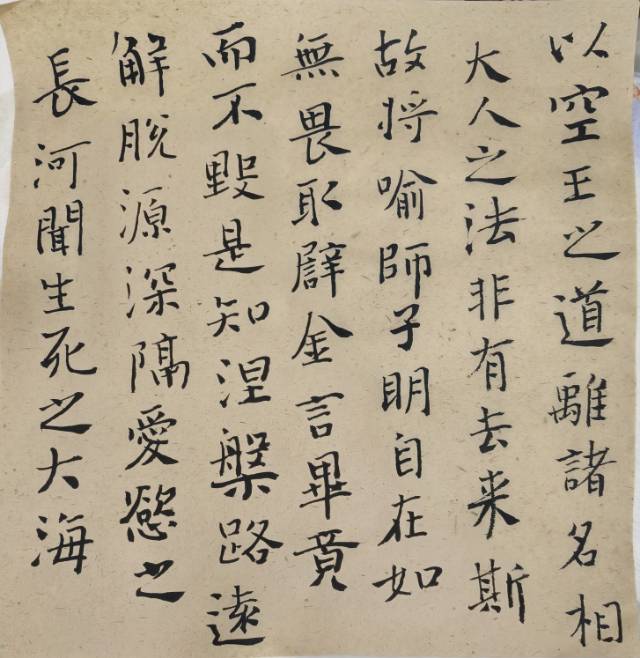 以空王之道離諸名相
大人之法非有去来斯
故将喻師子明自在如
無畏取譬金言畢竟
而不毀是知涅槃路遠
解脫源深隔愛慾之
長河聞生死之大海